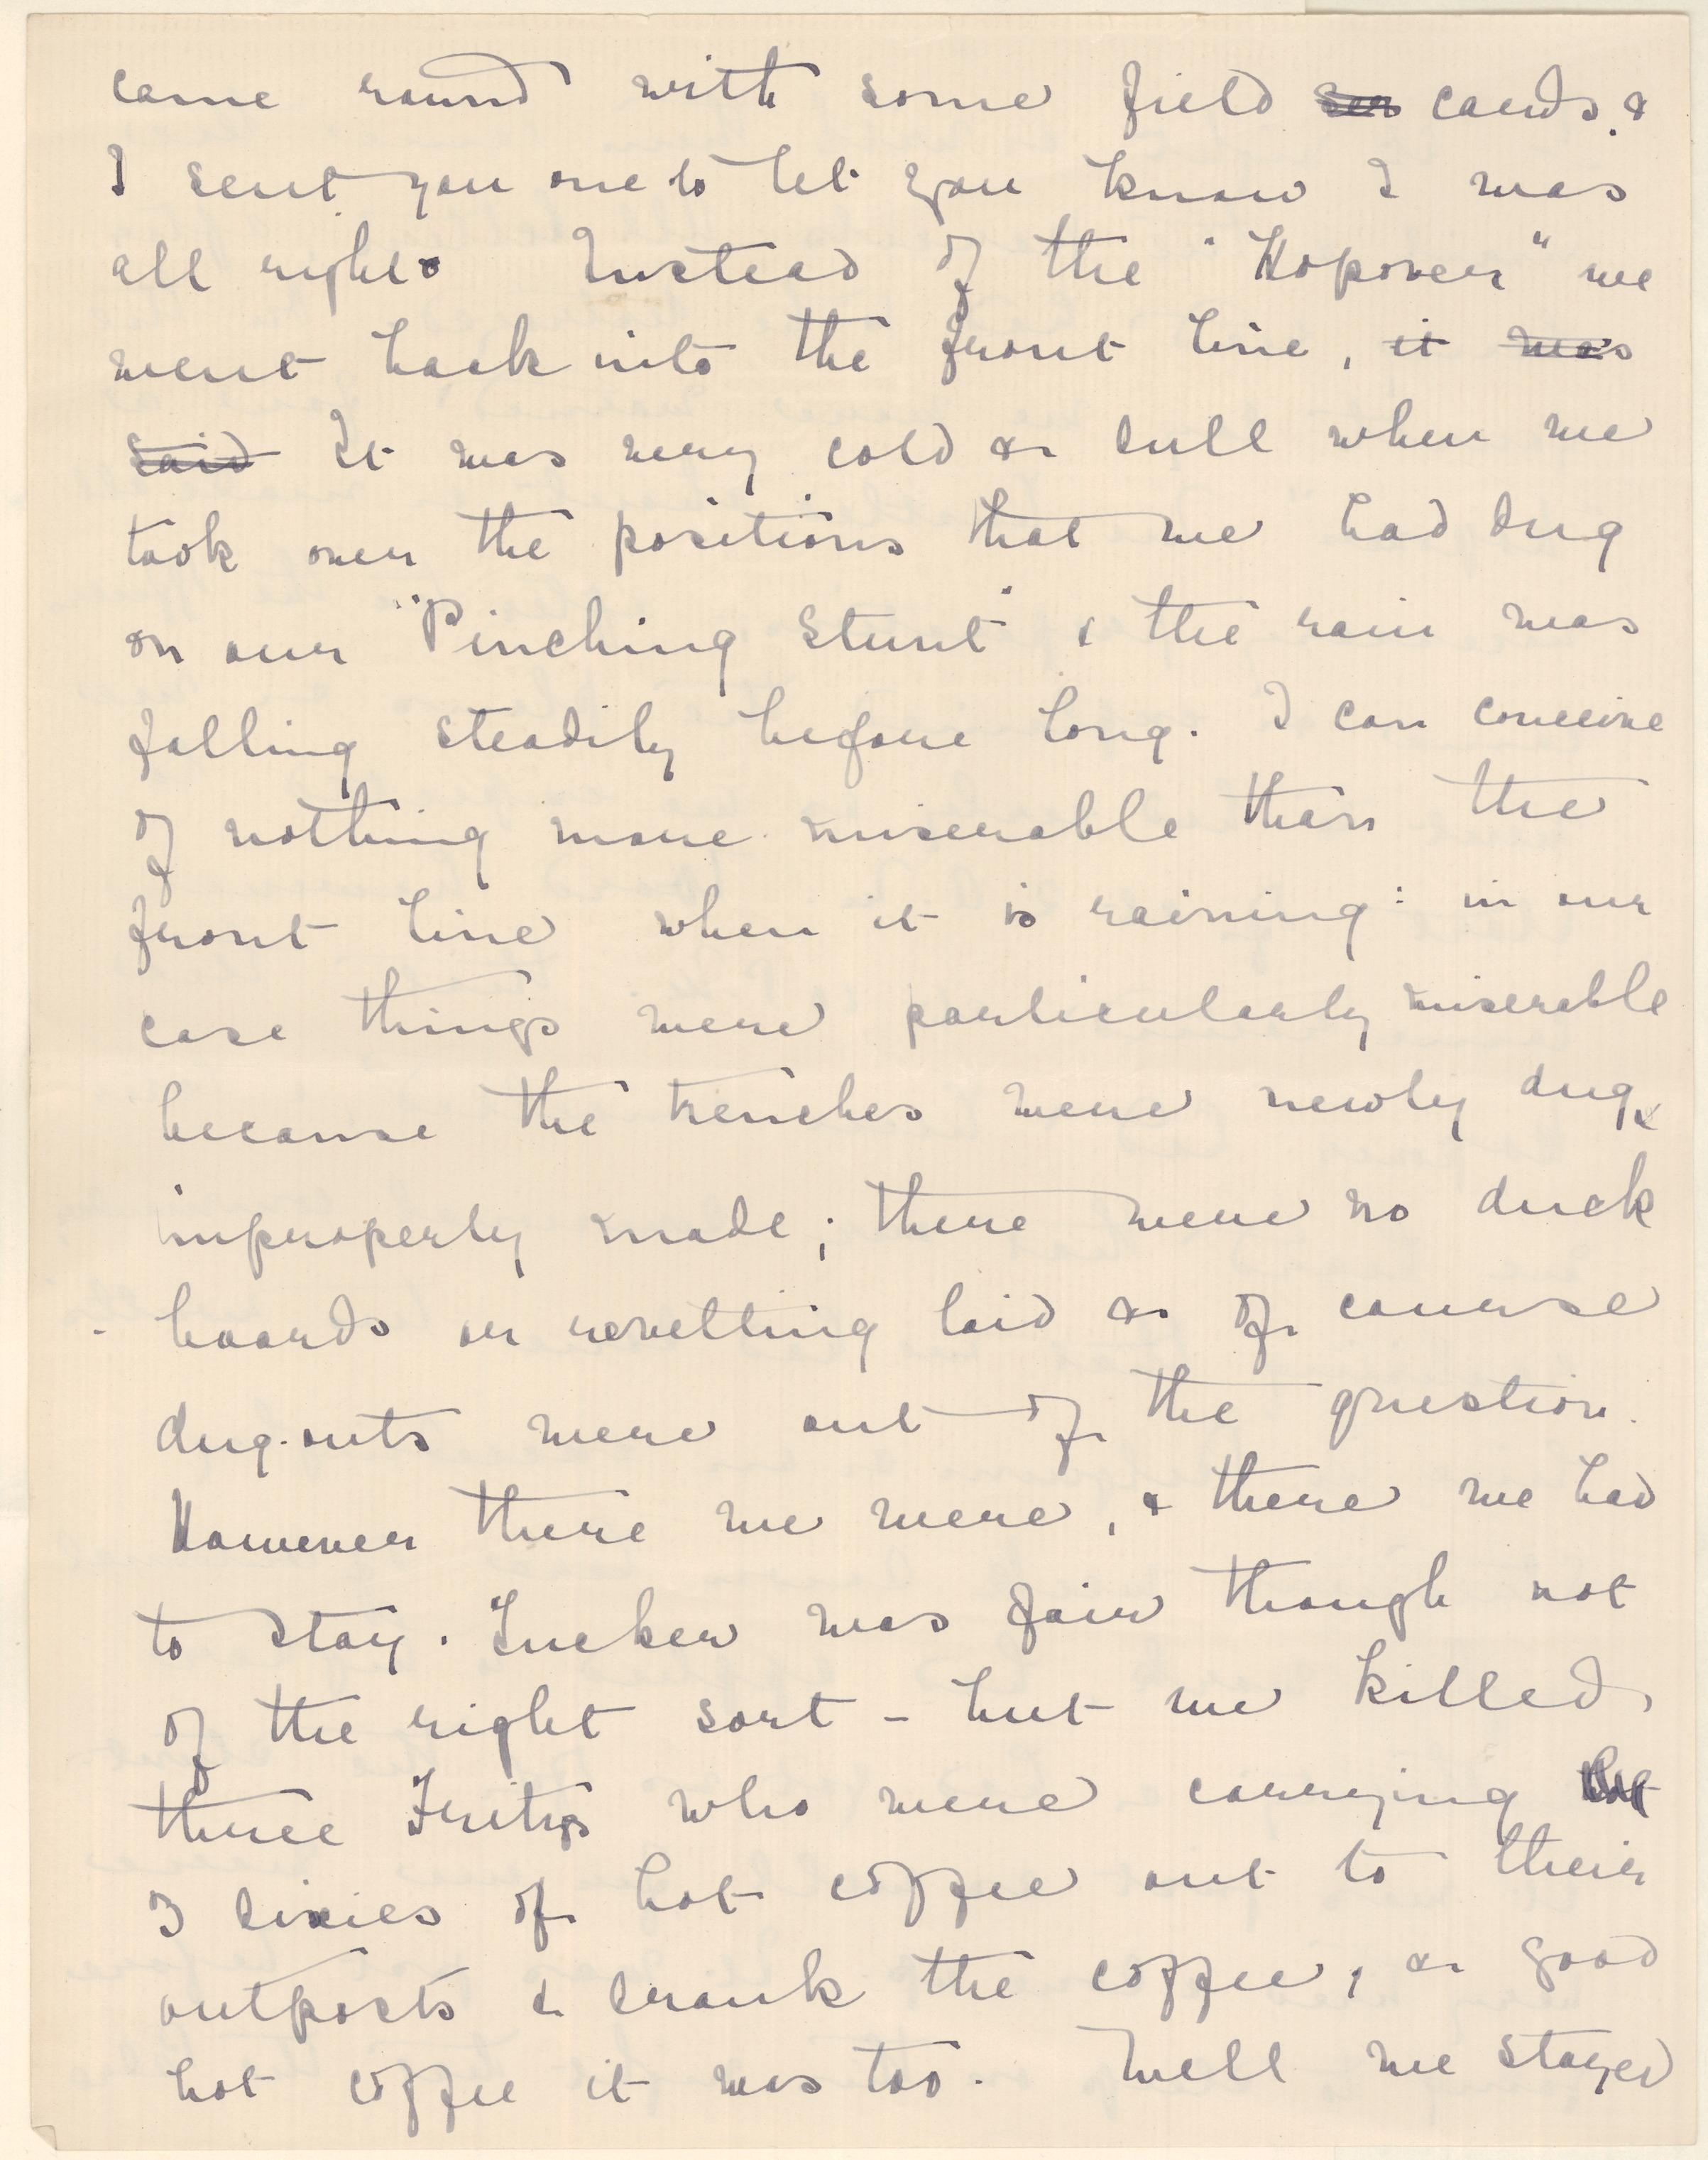 came round with some field cards. &
I sent you one to let you know I was
all right. Instead of the "Hopover" we
went back into the front line, it was
said It was very cold & dull when we
took over the positions that we had dug
on our "Pinching Stunt" & the rain was
falling steadily before long. I can conceive
of nothing more miserable than the
front line when it is raining: in our
case things were particularly miserable
because the trenches were newly dug &
improperly made; there were no duck
- boards or revetting laid & of course
dug-outs were out of the question.
However there we were, & there we had
to stay. Tucker was fair though not
of the right sort - but we killed
three Fritzs who were carrying
3 dixies of hot coffee out to their
outposts & drank the coffee, & good
hot coffee it was too. Well we stayed